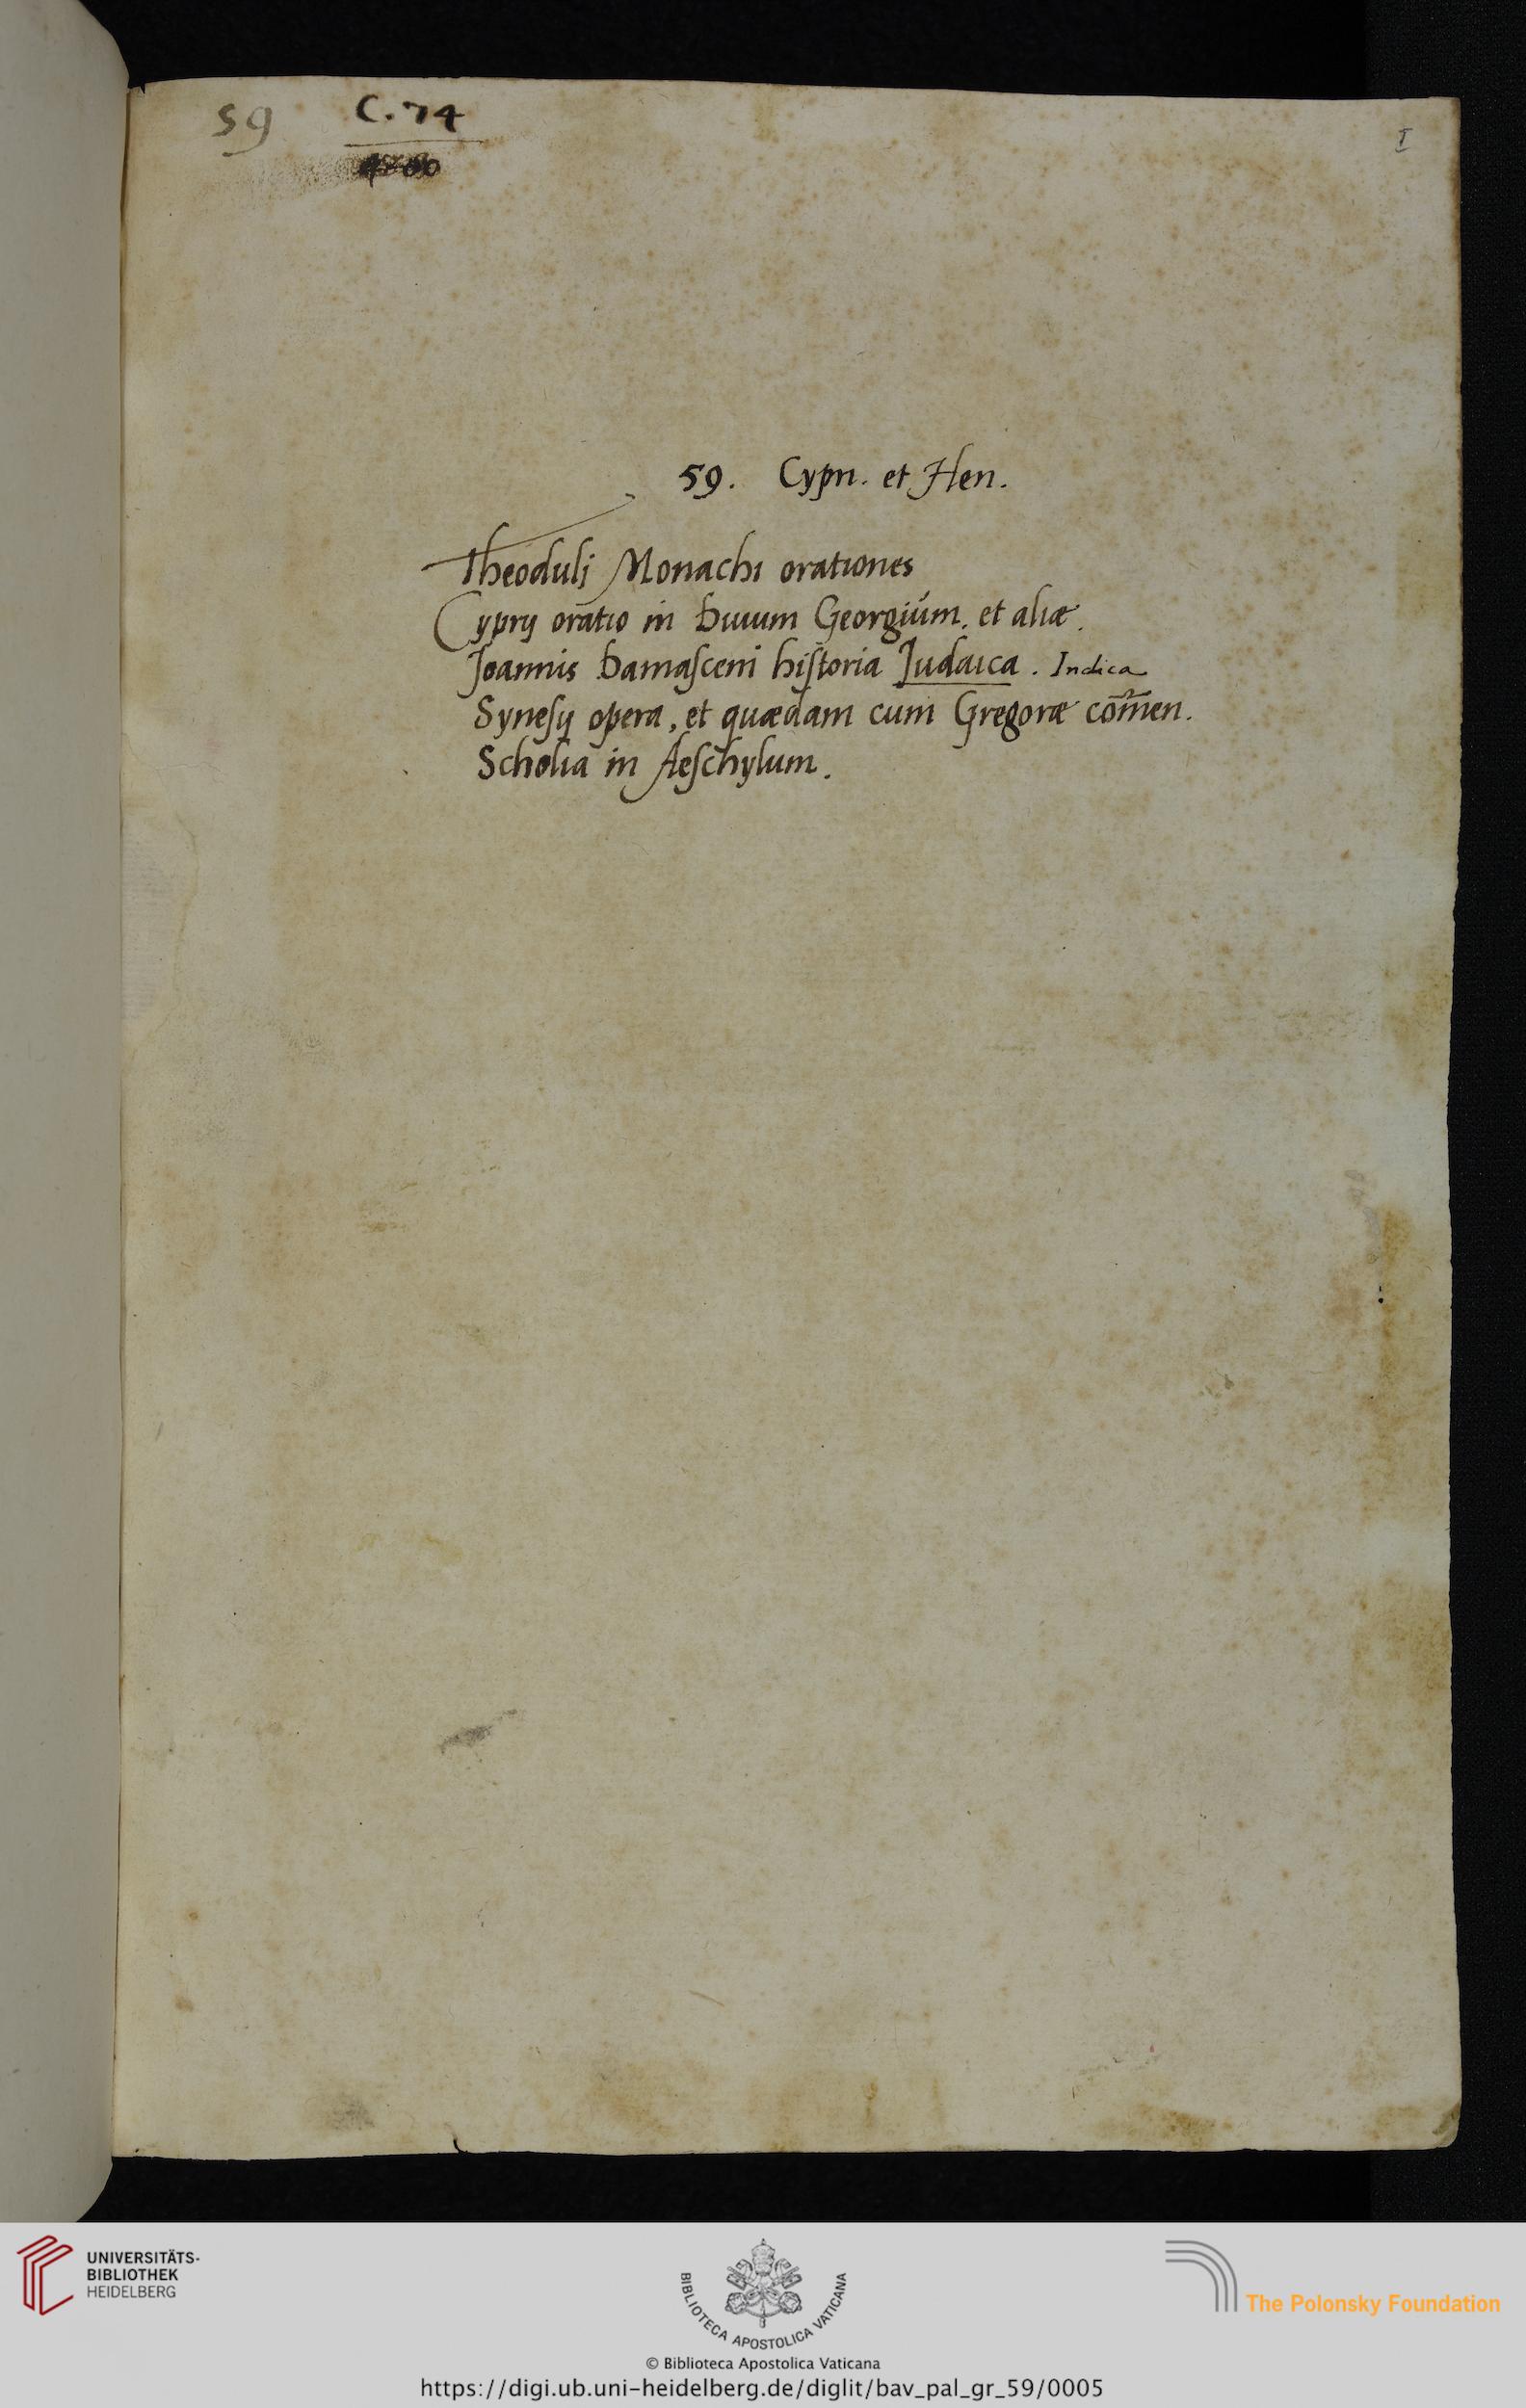 59 C. 74
I
59. Cypri. et Hen.
Theoduli Monachi orationes
Cyprij oratio in Diuum Georgium. et aliæ.
Joannis Damasceni historia Judaica. Indica
Synesij opera, et quædam cum Gregoræ com̃en.
Scholia in Aeschylum.
UNIVERSITÄTS-
BIBLIOTHEK
HEIDELBERG
BIBLIOTECA APOSTOLICA VATICANA
The Polonsky Foundation
© Biblioteca Apostolica Vaticana
https://digi.ub.uni-heidelberg.de/diglit/bav_pal_gr_59/0005